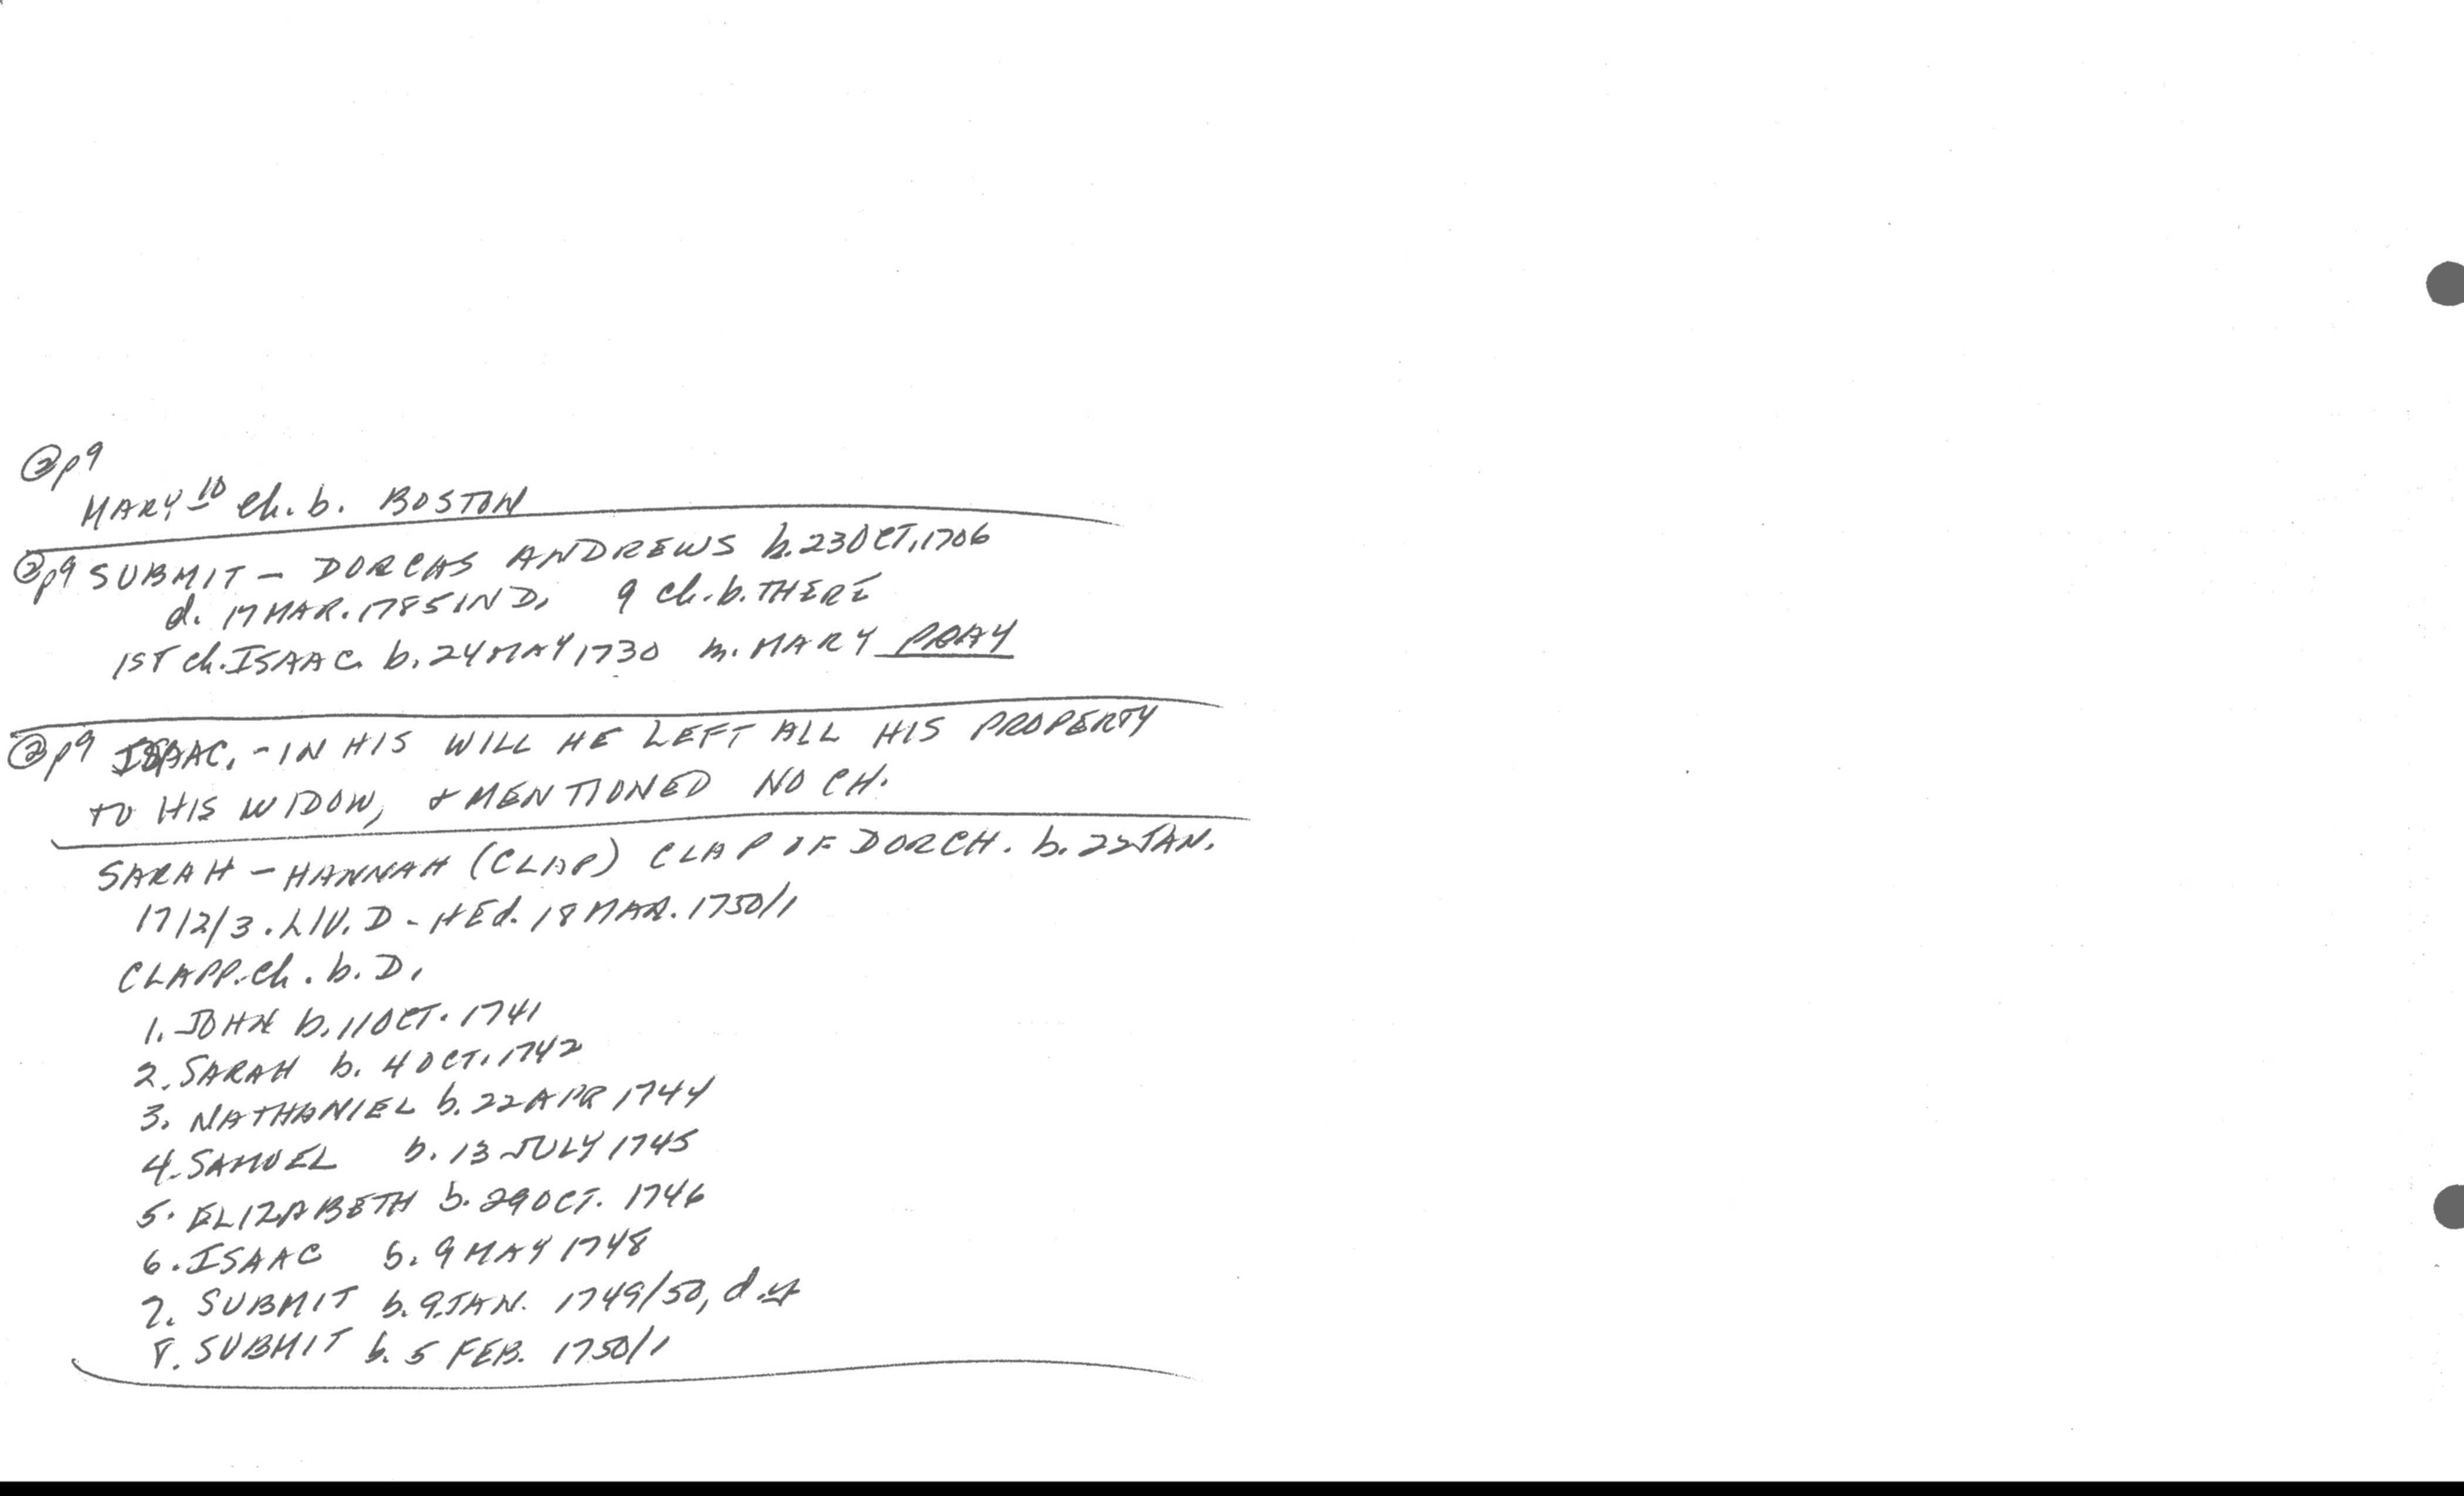 ② p9
MARY 10 ch. b. BOSTON
② p9 SUBMIT - DORCAS ANDREWS b. 23 OCT. 1706
d. 17 MAR. 1785 IN D. 9 ch. b. THERE
1ST ch. ISAAC b. 24 MAY 1730 m. MARY PRAY
② p9 ISAAC. - IN HIS WILL HE LEFT ALL HIS PROPERTY
TO HIS WIDOW, & MENTIONED NO CH.
SARAH - HANNAH (CLAP) CLAP OF DORCH. b. 22 JAN.
1712/3. LIV. D - HE d. 18 MAR. 1750/1
CLAPP. ch. b. D.
1. JOHN b. 11 OCT. 1741
2. SARAH b. 4 OCT. 1742
3. NATHANIEL b. 22 APR 1744
4. SAMUEL b. 13 JULY 1745
5. ELIZABETH b. 29 OCT. 1746
6. ISAAC b. 9 MAY 1748
7. SUBMIT b. 9 JAN. 1749/50, d.y
8. SUBMIT b. 5 FEB. 1750/1